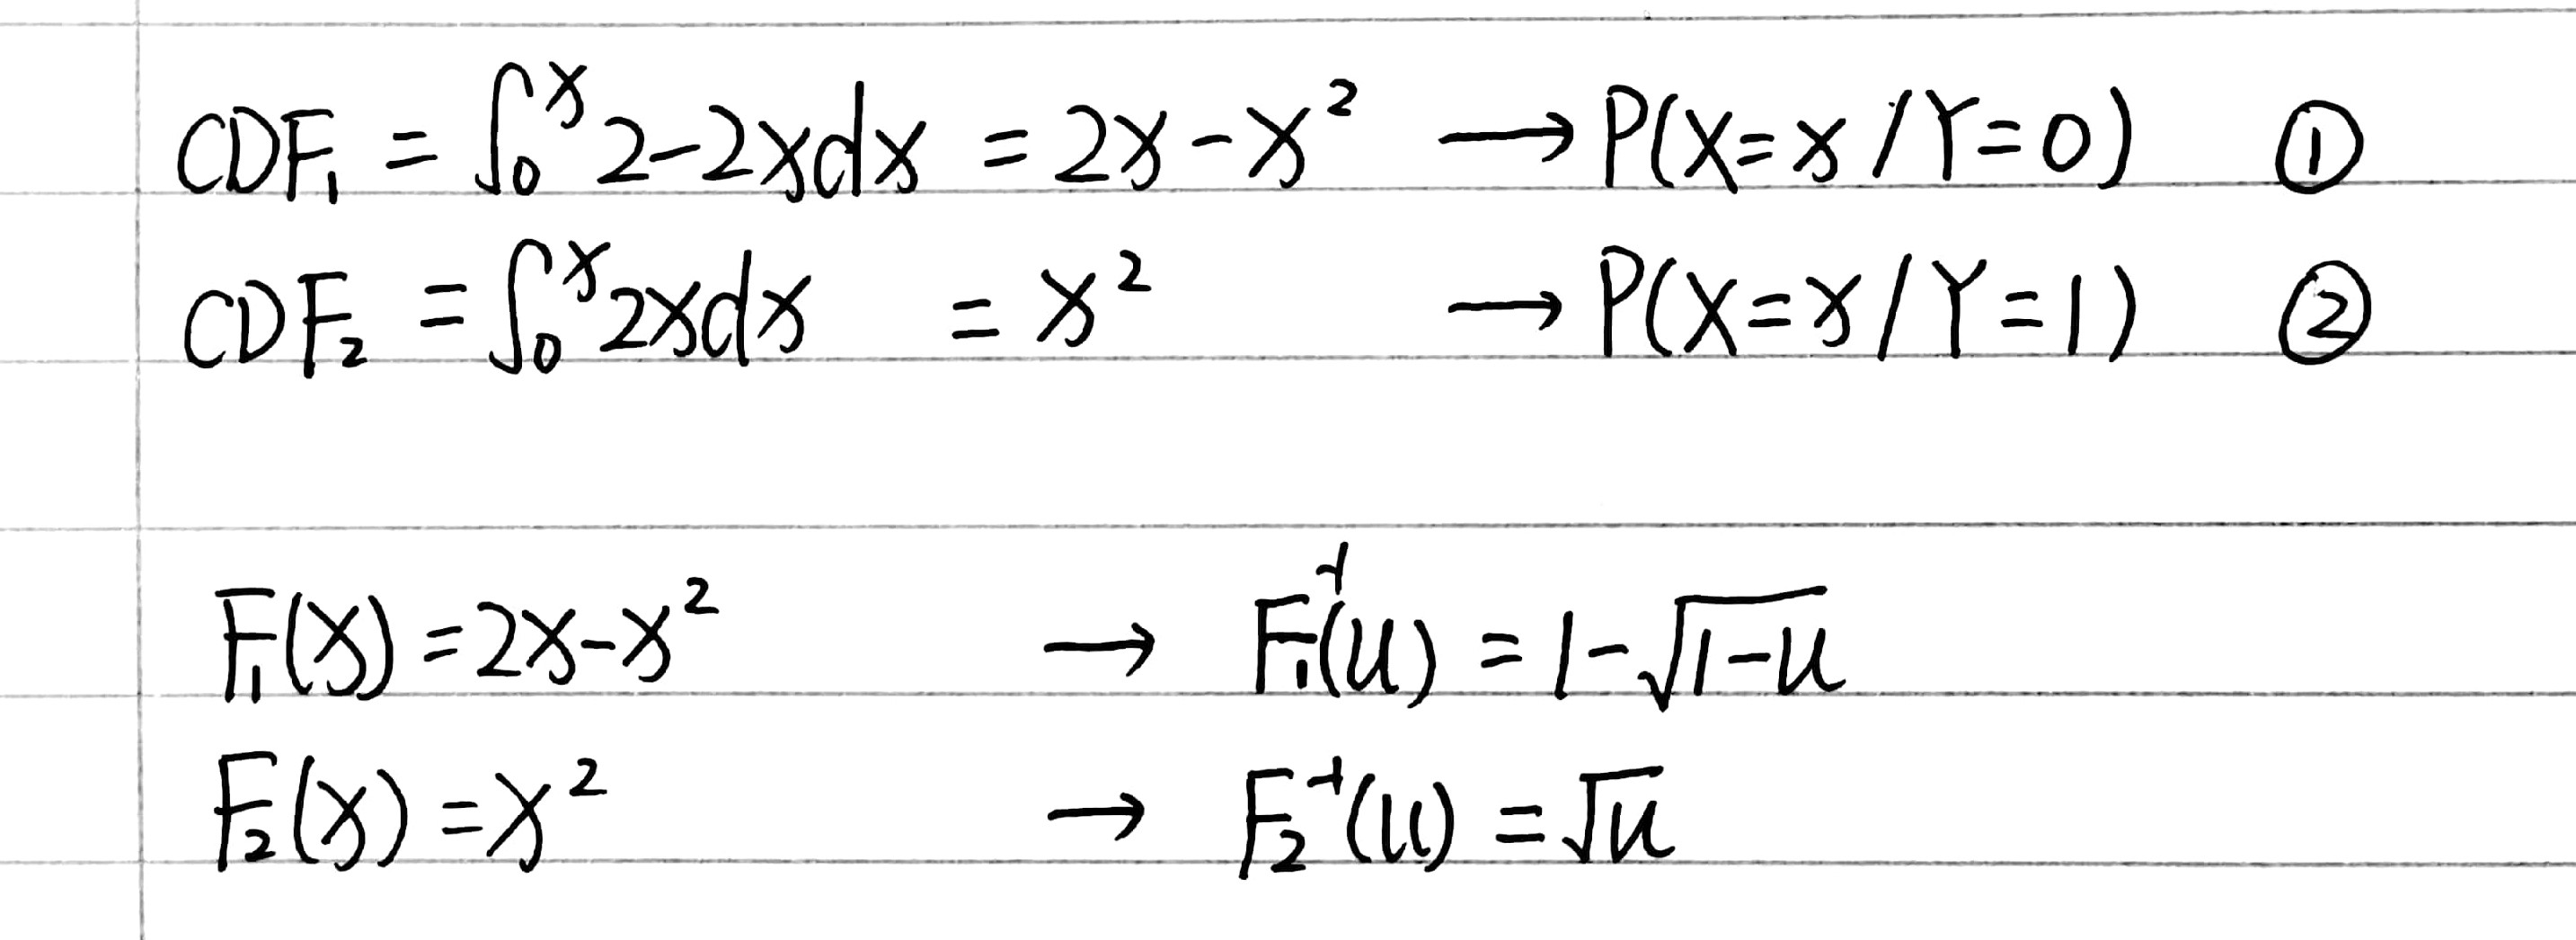 CDF₁ = ∫₀ˣ 2-2xdx = 2x-x² → P(X=x/Y=0) ①
CDF₂ = ∫₀ˣ 2xdx = x² → P(X=x/Y=1) ②
F₁(x) = 2x-x² → F₁⁻¹(u) = 1-√(1-u)
F₂(x) = x² → F₂⁻¹(u) = √u